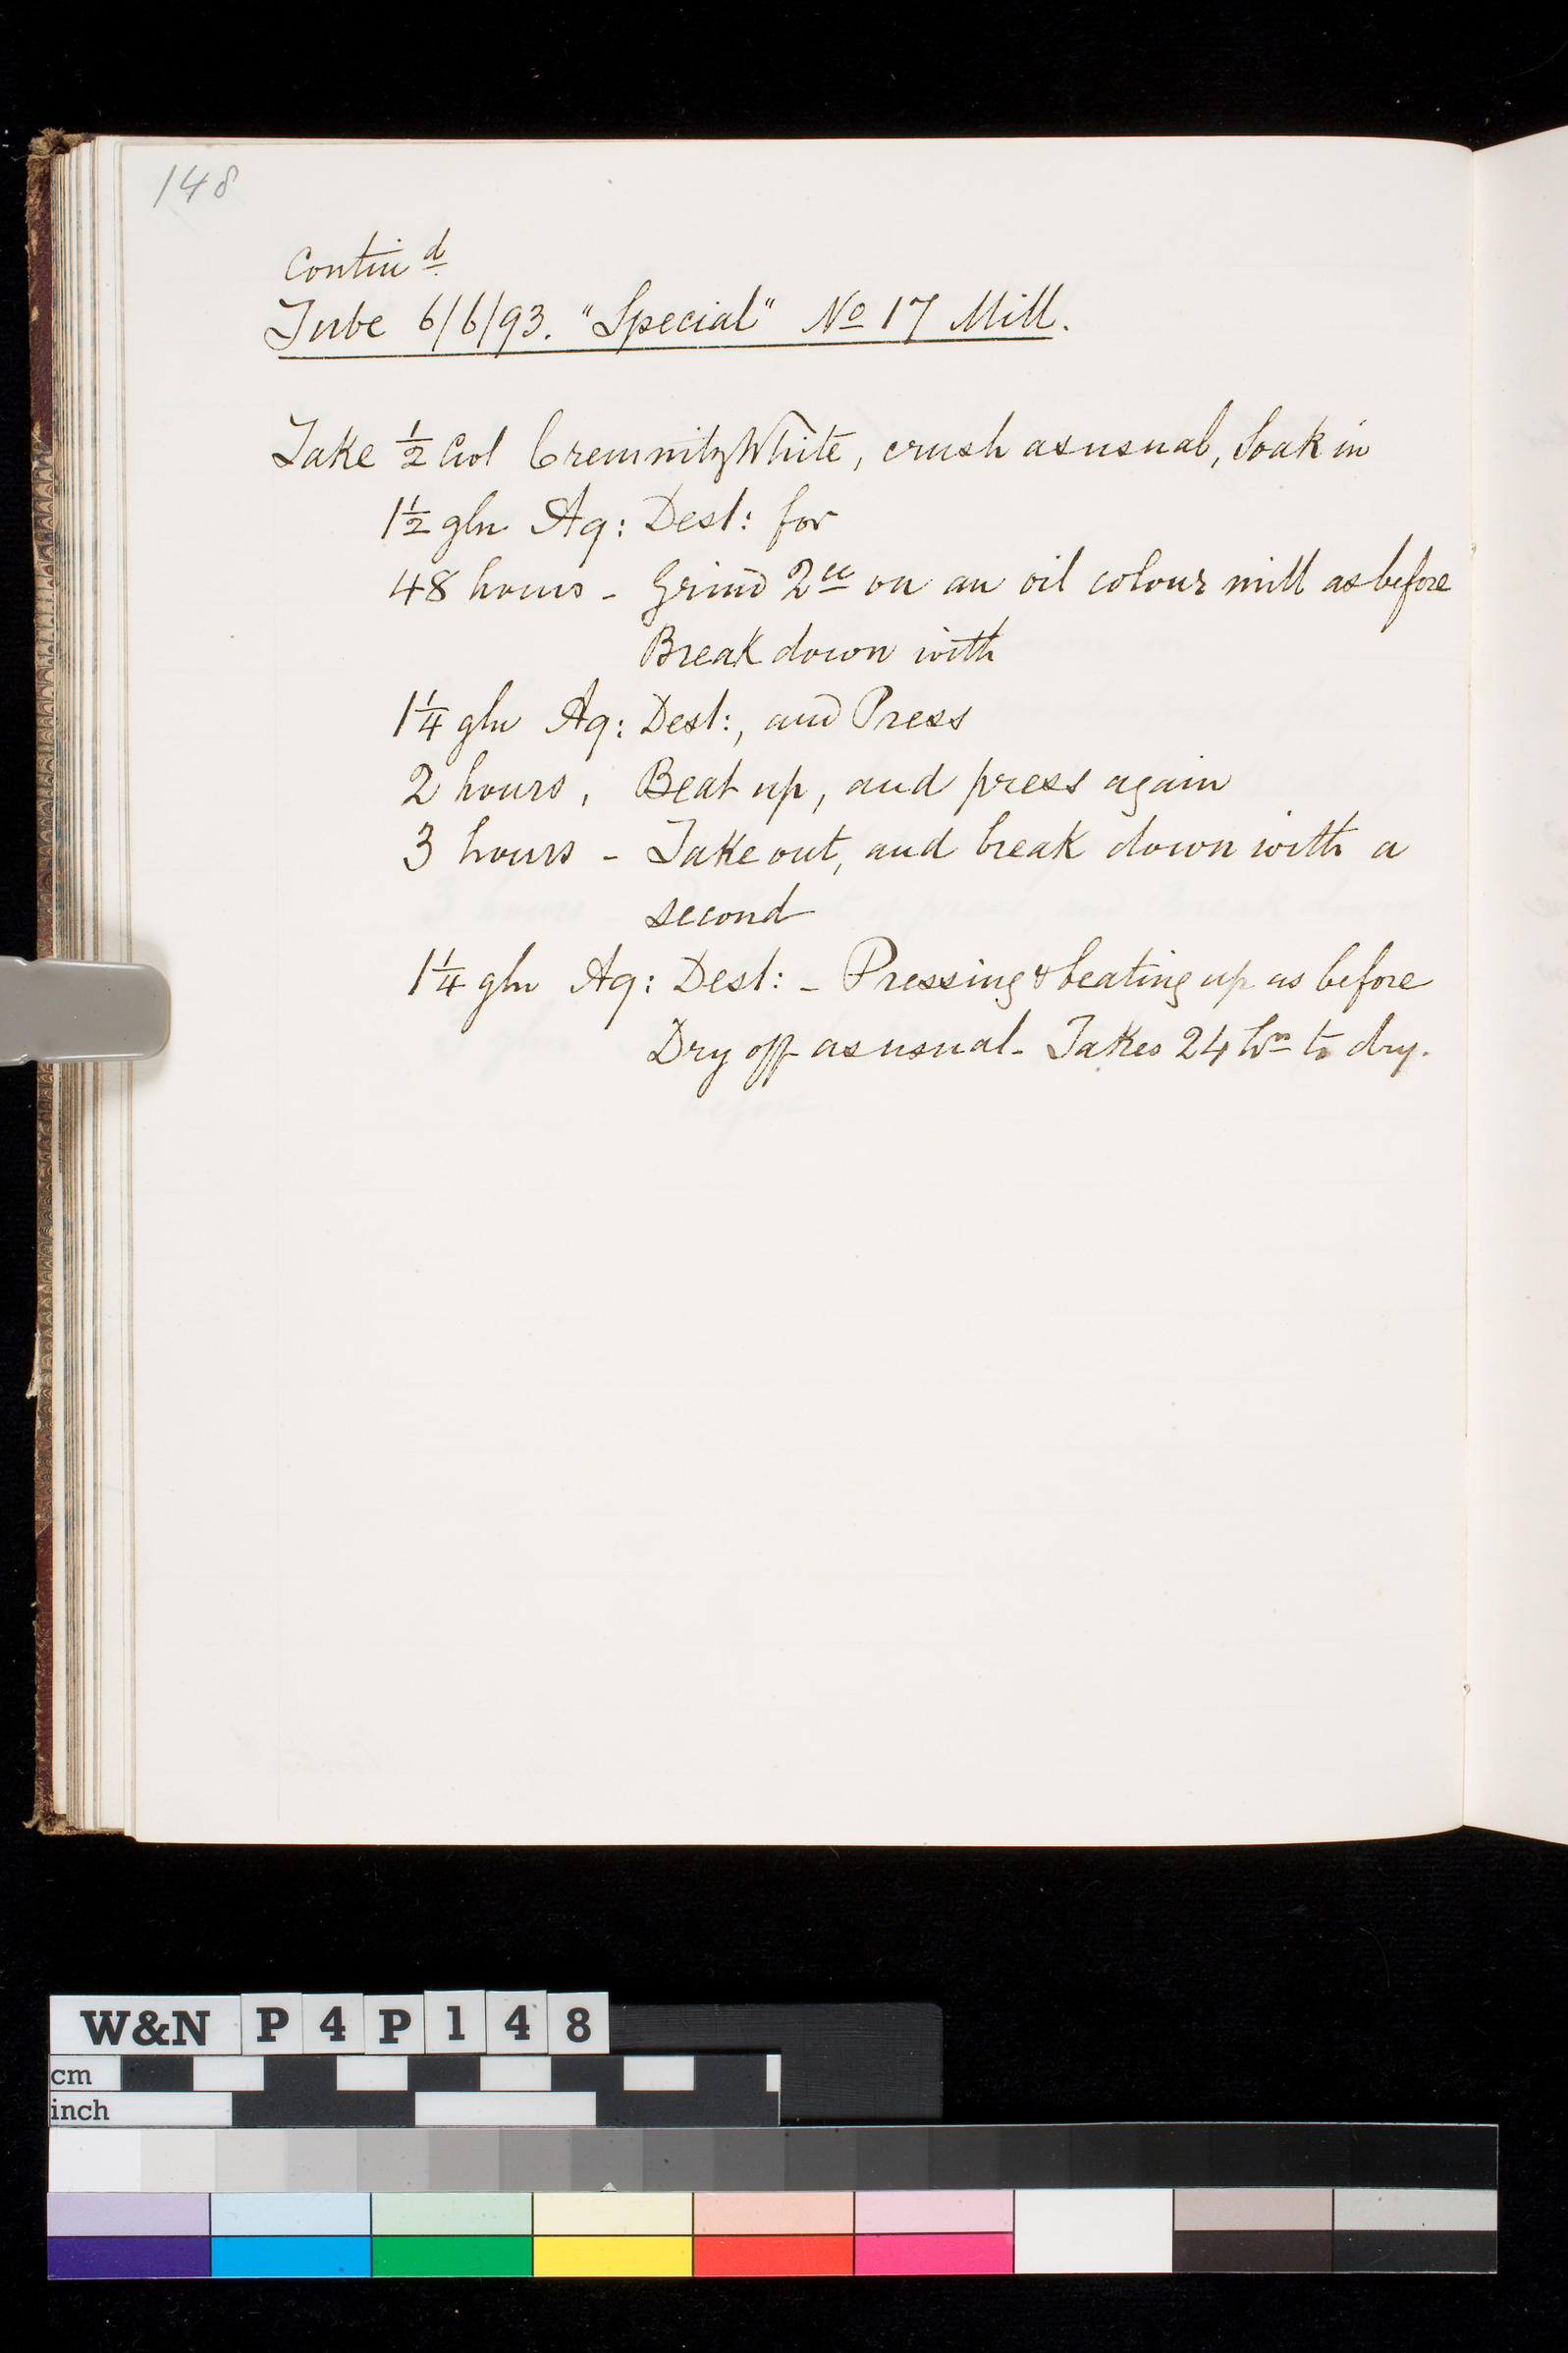 148
Contin d
Tube 6/6/93. "Special" No 17 Mill.
Take 1/2 Cwt Cremnitz White, crush as usual, Soak in
1 1/2 gln Aq: Dest: for
48 hours - Grind 2ce on an oil colour mill as before
Break down with
1 1/4 gln Aq: Dest:, and Press
2 hours, Beat up, and press again
3 hours - Take out, and break down with a
second
1 1/4 gln Aq: Dest: - Pressing & beating up as before
Dry off as usual - Takes 24 hrs to dry.
W&N P4P148
cm
inch